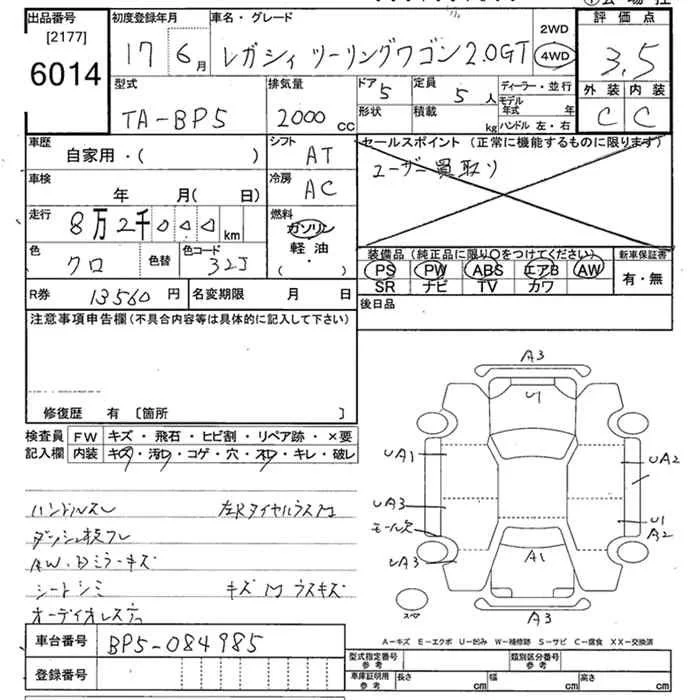 出品番号 初度登録年月 車名・グレード 2WD 評価点
[2177]
6014
17 6月 レガシィ ツーリングワゴン 2.0GT 4WD 3.5
型式 排気量 ドア 定員 ディーラー・並行 外装 内装
TA-BP5 2000cc 5 5人 モデル年式 年 C C
形状 積載 kg ハンドル 左・右
車歴 シフト セールスポイント(正常に機能するものに限ります)
自家用・( ) AT ユーザー買取り
車検 冷房
年 月( 日) AC
走行 燃料
8万2千000km ガソリン
軽油
( ・ )
色 色替 色コード 装備品(純正品に限り○をつけてください) 新車保証書
クロ 32J PS PW ABS エアB AW 有・無
SR ナビ TV カワ
R券 13560円 名変期限 月 日 後日品
注意事項申告欄(不具合内容等は具体的に記入して下さい)
修復歴 有 〔箇所 〕
検査員 FW キズ・飛石・ヒビ割・リペア跡・×要
記入欄 内装 キズ・汚レ・コゲ・穴・スレ・キレ・破レ
ハンドルスレ
AW.Dミラーキズ
シートシミ
車台番号 BP5-084985
登録番号
A3
U
UA1 UA2
UA3 U1
A2
UA3 A1
A3
A-キズ E-エクボ U-凹み W-補修跡 S-サビ C-腐食 XX-交換済
型式指定番号 参考 類別区分番号 参考
車庫証明用 参考 長さ cm 幅 cm 高さ cm